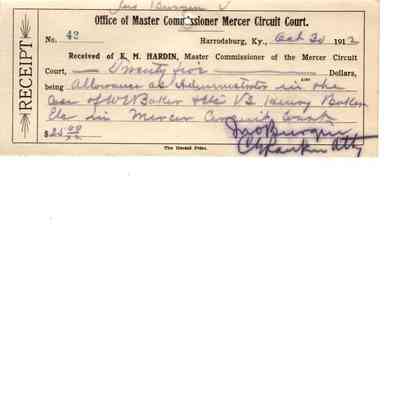 Jas Burgen
RECEIPT
Office of Master Commissioner Mercer Circuit Court.
No. 42 Harrodsburg, Ky., Oct 30 1912
Received of E. M. HARDIN, Master Commissioner of the Mercer Circuit
Court, Twenty five Dollars,
being allowance as Administrator in the
case of W Baker &c VS Baker
&c in Mercer Circuit Court
$25.00
Jas Burgen
Atty
The Herald Print.